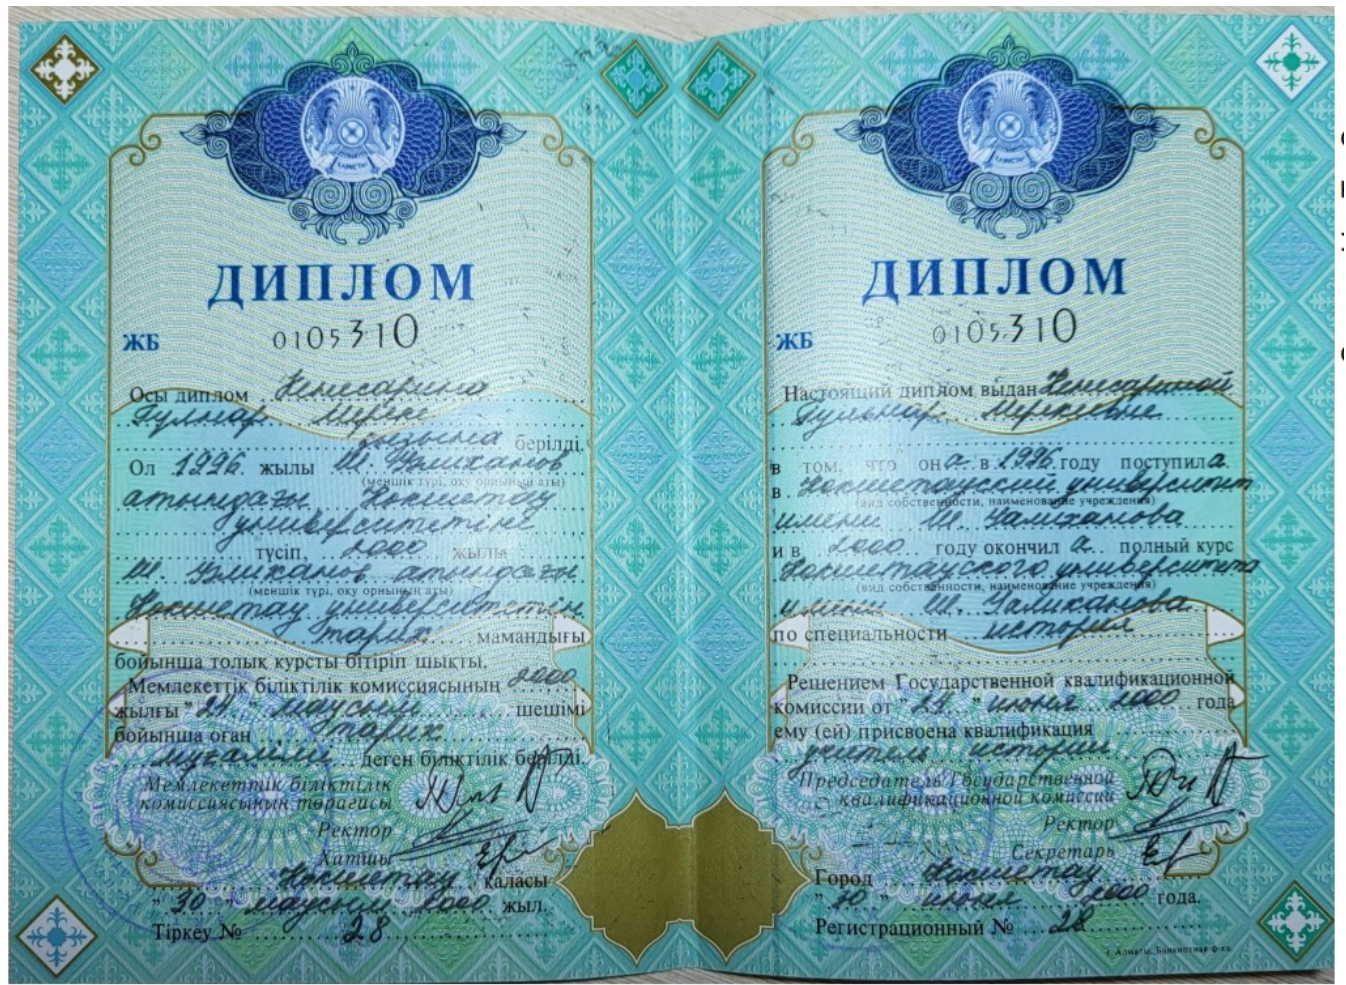 ДИПЛОМ
ЖБ 0105310
Осы диплом Кенесарина
Гулнар Мереке
қызына берілді.
Ол 1996 жылы Ш. Уәлиханов
(меншік түрі, оқу орнының аты)
атындағы Көкшетау
университетіне
түсіп, 2000 жылы
Ш. Уәлиханов атындағы
(меншік түрі, оқу орнының аты)
Көкшетау университетін
тарих мамандығы
бойынша толық курсты бітіріп шықты.
Мемлекеттік біліктілік комиссиясының 2000
жылғы "24" маусым шешімі
бойынша оған тарих
мұғалімі деген біліктілік берілді.
Мемлекеттік біліктілік
комиссиясының төрағасы
Ректор
Хатшы
Көкшетау қаласы
"30" маусым 2000 жыл.
Тіркеу № 28
ДИПЛОМ
ЖБ 0105310
Настоящий диплом выдан Кенесариной
Гульнар Меркиевне
в том, что она в 1996 году поступила
в Кокшетауский университет
(вид собственности, наименование учреждения)
имени Ш. Уалиханова
и в 2000 году окончила полный курс
Кокшетауского университета
(вид собственности, наименование учреждения)
имени Ш. Уалиханова
по специальности история
Решением Государственной квалификационной
комиссии от "24" июня 2000 года
ему (ей) присвоена квалификация
учитель истории
Председатель Государственной
квалификационной комиссии
Ректор
Секретарь
Город Кокшетау
"30" июня 2000 года.
Регистрационный № 28
г. Алматы, Банкнотная ф-ка.